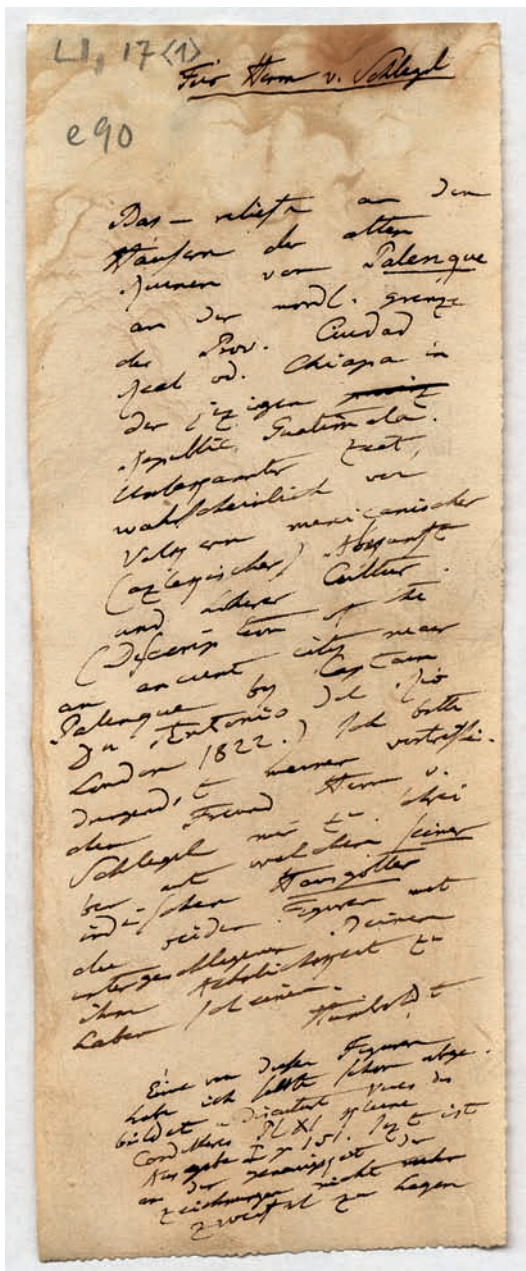 LI, 17 <1>
Für Herrn v. Schlegel
e 90
Bas-reliefs an den
Häusern der alten
Ruinen von Palenque
an der nördl. Grenze
der Prov. Ciudad
Real od. Chiapa in
der jezigen
Republic Guatimala.
Unbekannter Zeit,
wahrscheinlich von
Völkern mexicanischer
(aztekischer) Abkunft
und älterer Cultur.
(Description of the
an ancient city near
Palenque by Captain
Dn Antonio del Rio
London 1822.) Ich bitte
dringendst meinen vortrefli-
chen Freund Herrn v.
Schlegel mir zu schrei
ben mit welchem seiner
indischen Hausgötter
die beiden Figuren mit
untergeschlagenen Beinen
ihm Aehnlichkeit zu
haben scheinen.
Humboldt
Eine von diesen Figuren
habe ich selbst schon abge-
bildet Vues des
Cordilleres Pl XI kleine
Ausgabe I p 151. Jezt ist
an der Genauigkeit der
Zeichnungen nicht mehr
Zweifel zu hegen